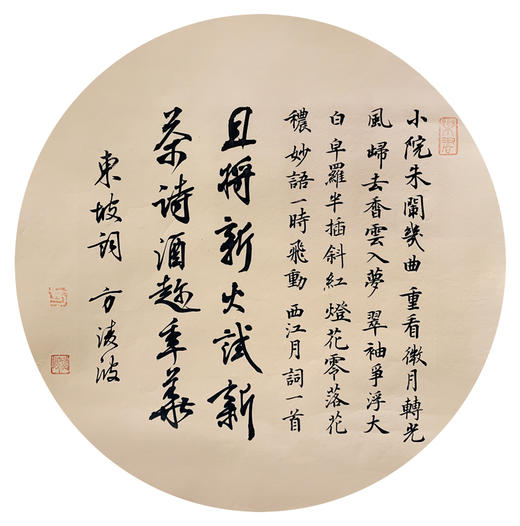 小院朱闌幾曲 重看微月轉光
風歸去香雲入夢 翠袖爭浮大
白皁羅半插斜紅 燈花零落花
穠妙語一時飛動 西江月詞一首
且將新火試新
茶詩酒趂年華
東坡詞 方波